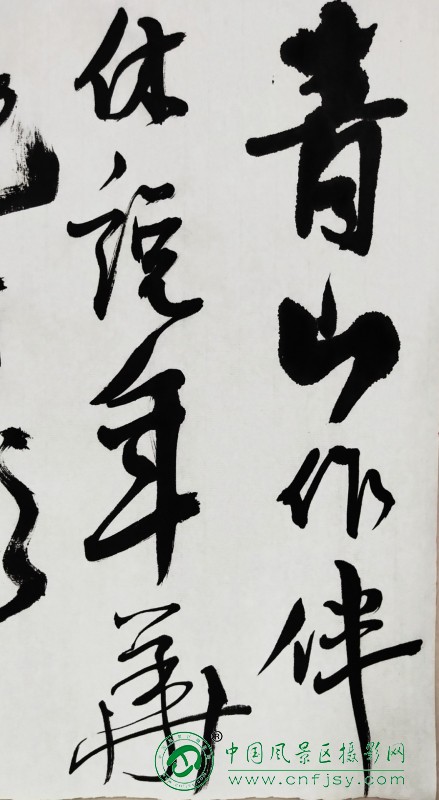 青山作伴
休说年华
®
中国风景区摄影网
www.cnfjsy.com